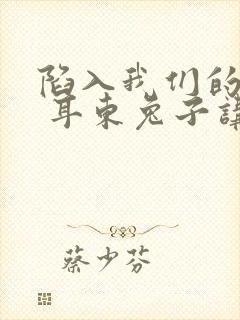 陷入我们的
耳东兔子讲
蔡少芬